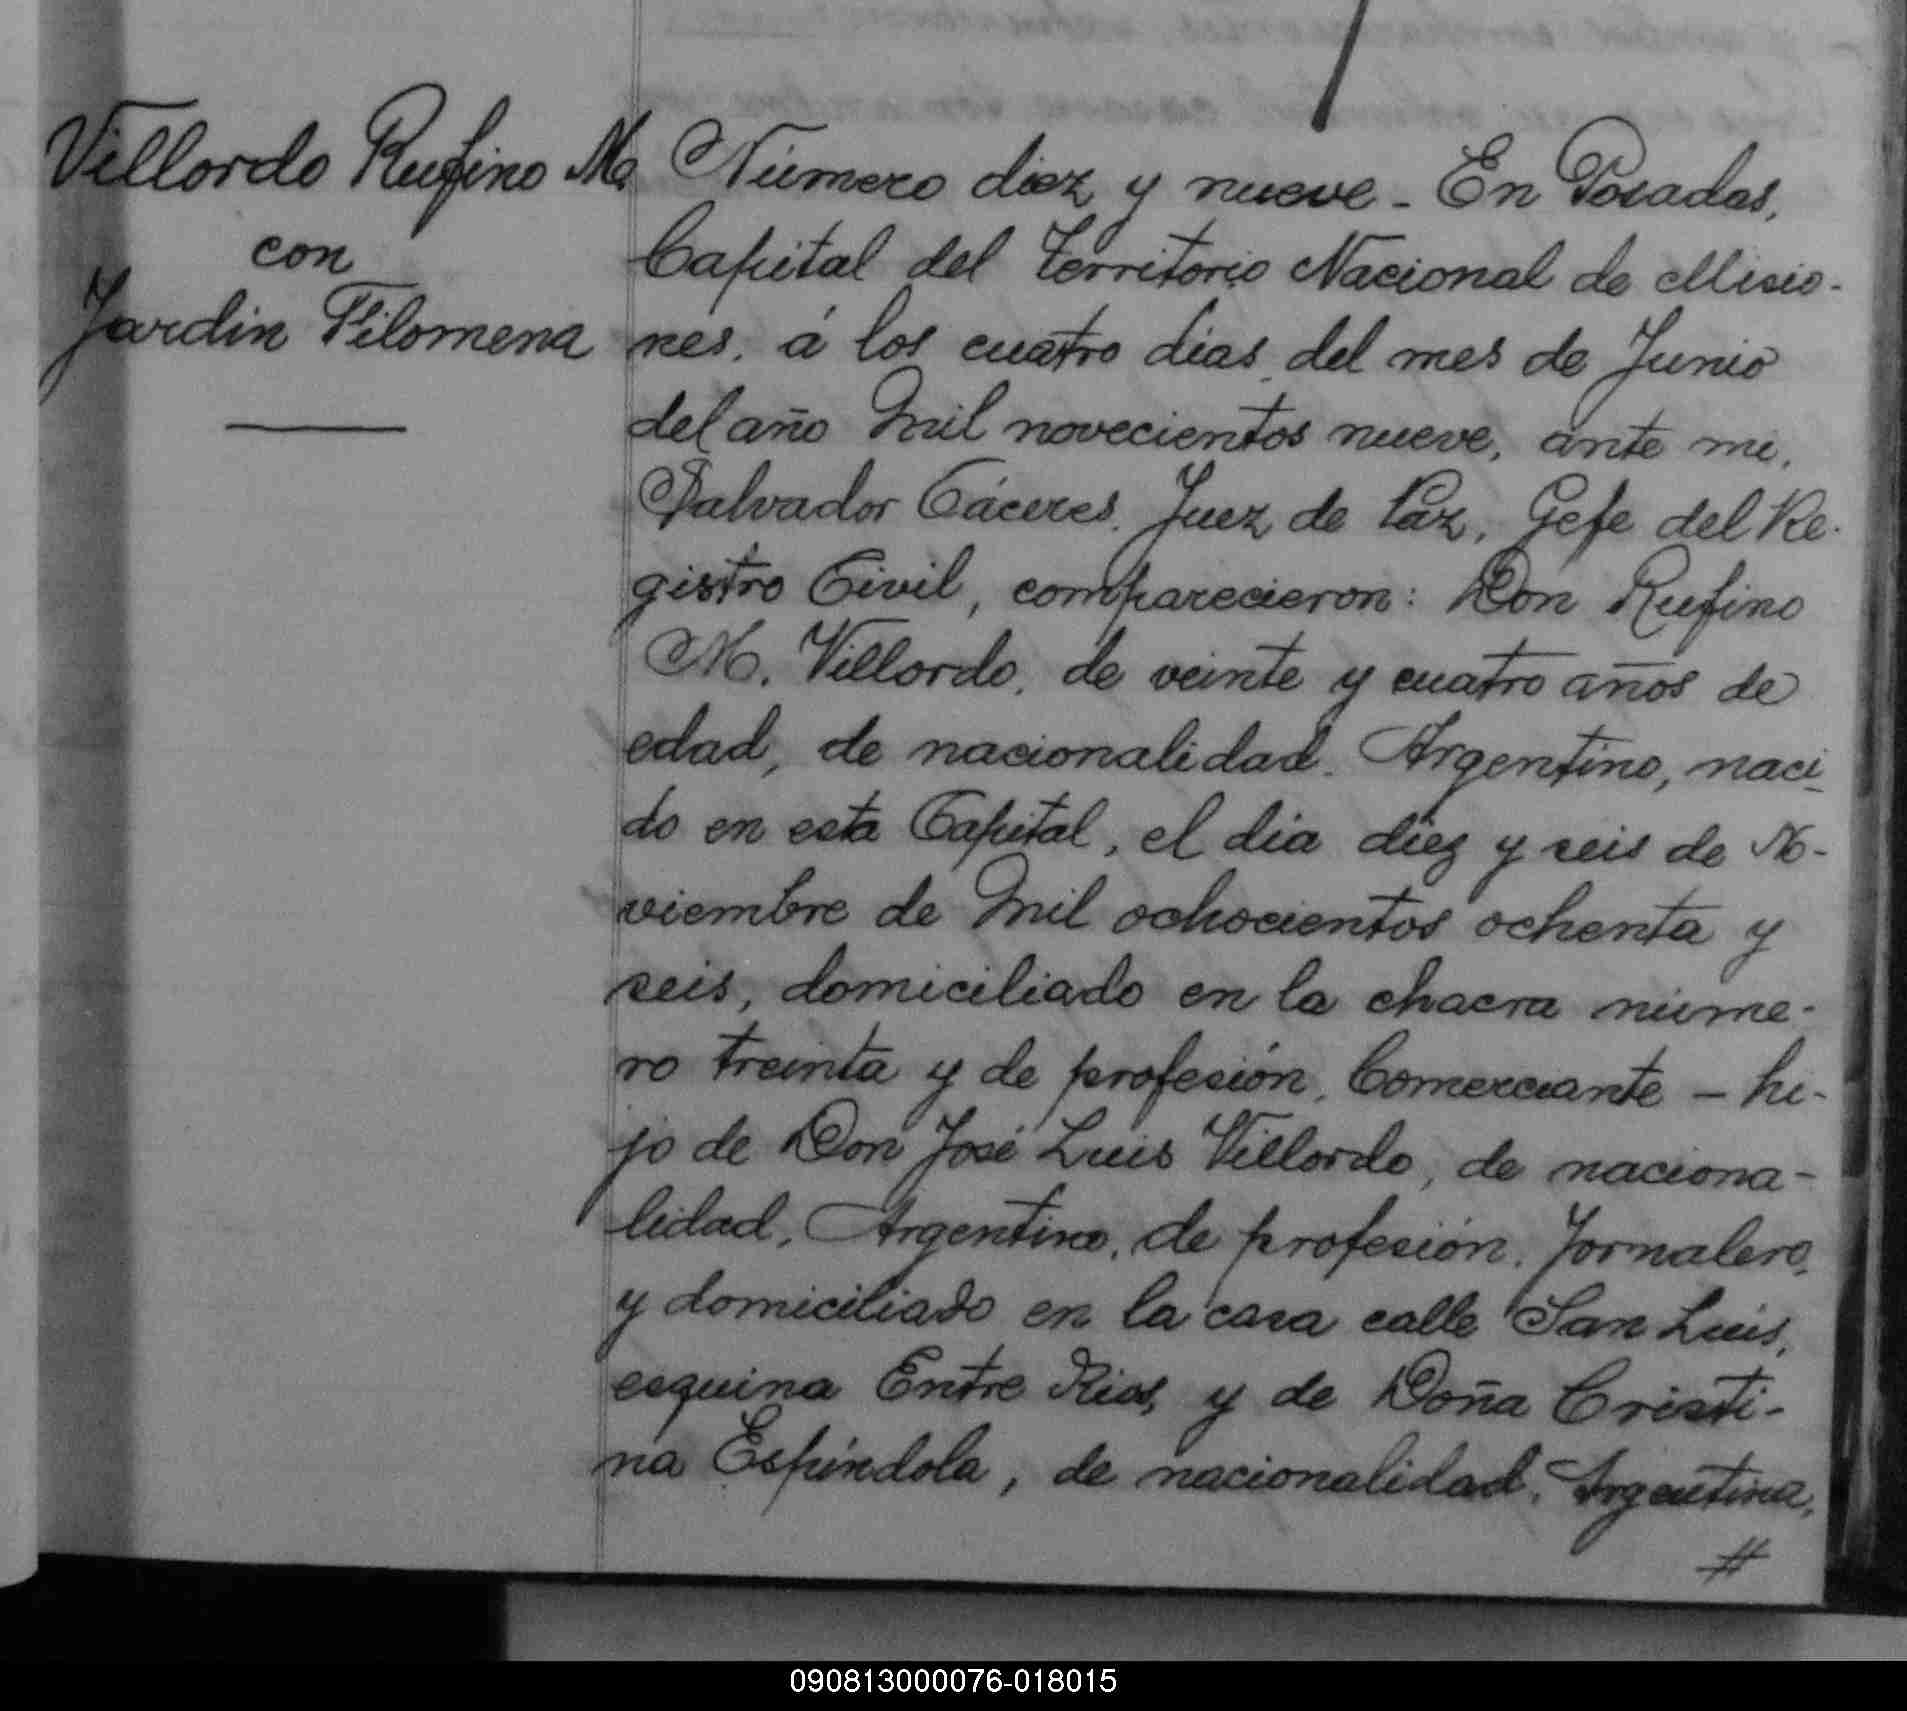 Villordo Rufino M.
con
Jardin Filomena
Número diez y nueve - En Posadas,
Capital del Territorio Nacional de Misio-
nes, á los cuatro dias del mes de Junio
del año Mil novecientos nueve, ante mi,
Salvador Cáceres, Juez de Paz, Gefe del Re-
gistro Civil, comparecieron: Don Rufino
M. Villordo, de veinte y cuatro años de
edad, de nacionalidad, Argentino, naci-
do en esta Capital, el dia diez y seis de No-
viembre de Mil ochocientos ochenta y
seis, domiciliado en la chacra núme-
ro treinta y de profesión, Comerciante - hi-
jo de Don José Luis Villordo, de naciona-
lidad, Argentino, de profesión, Jornalero,
y domiciliado en la casa calle San Luis,
esquina Entre Rios, y de Doña Cristi-
na Espíndola, de nacionalidad, Argentina,
#
090813000076-018015